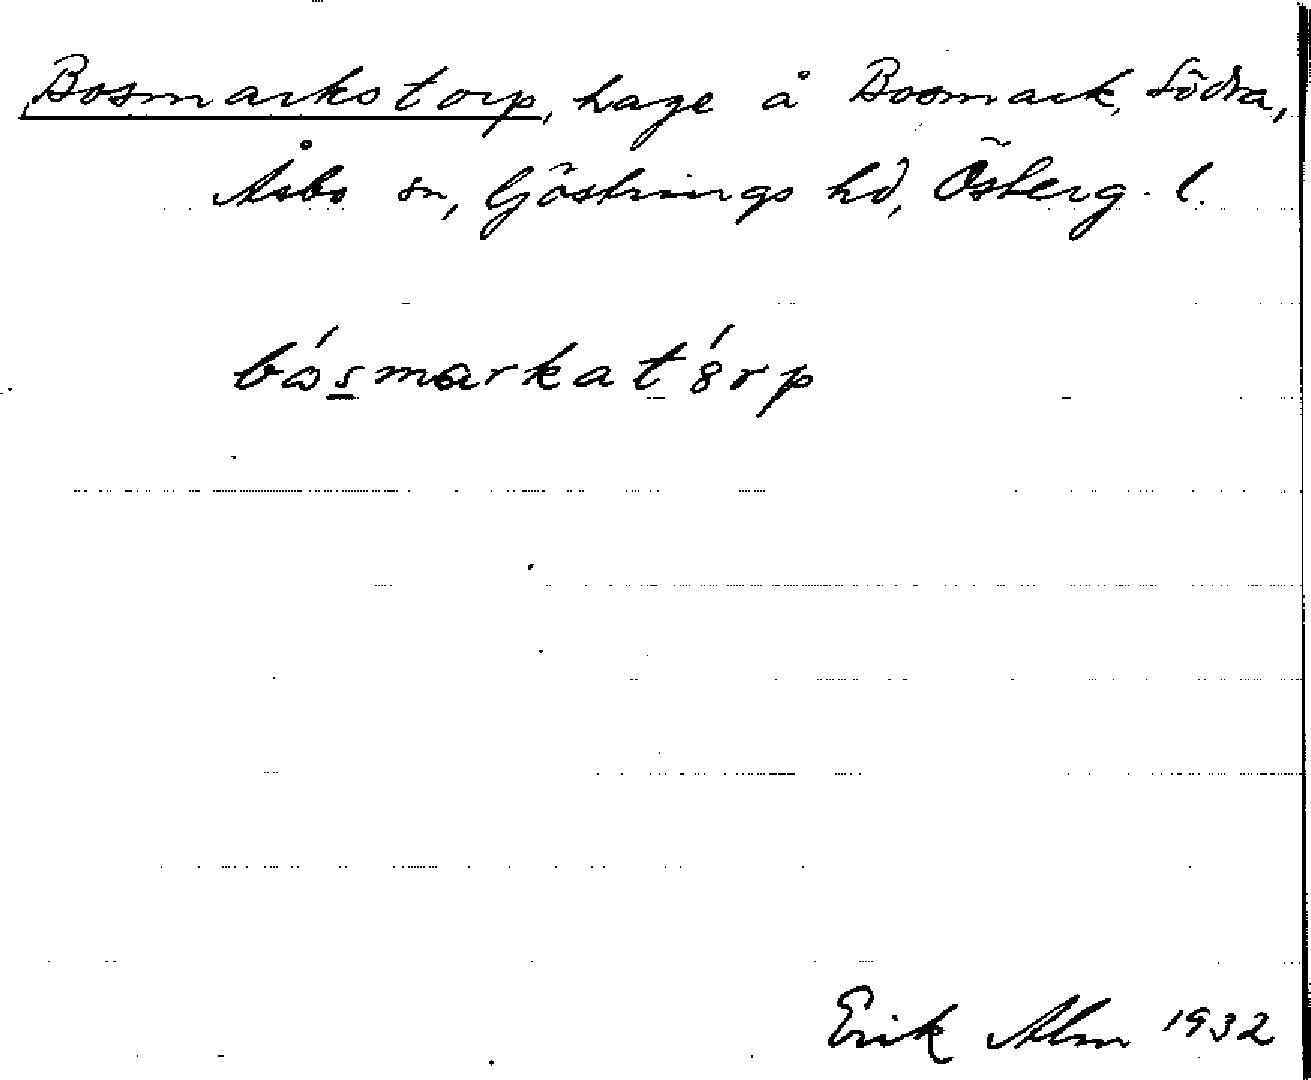 Bosmarkstorp, hage å Bosmark, Södra,
Åsbo sn, Göstrings hd, Österg. l.
bósmarkatórp
Erik Alm 1932